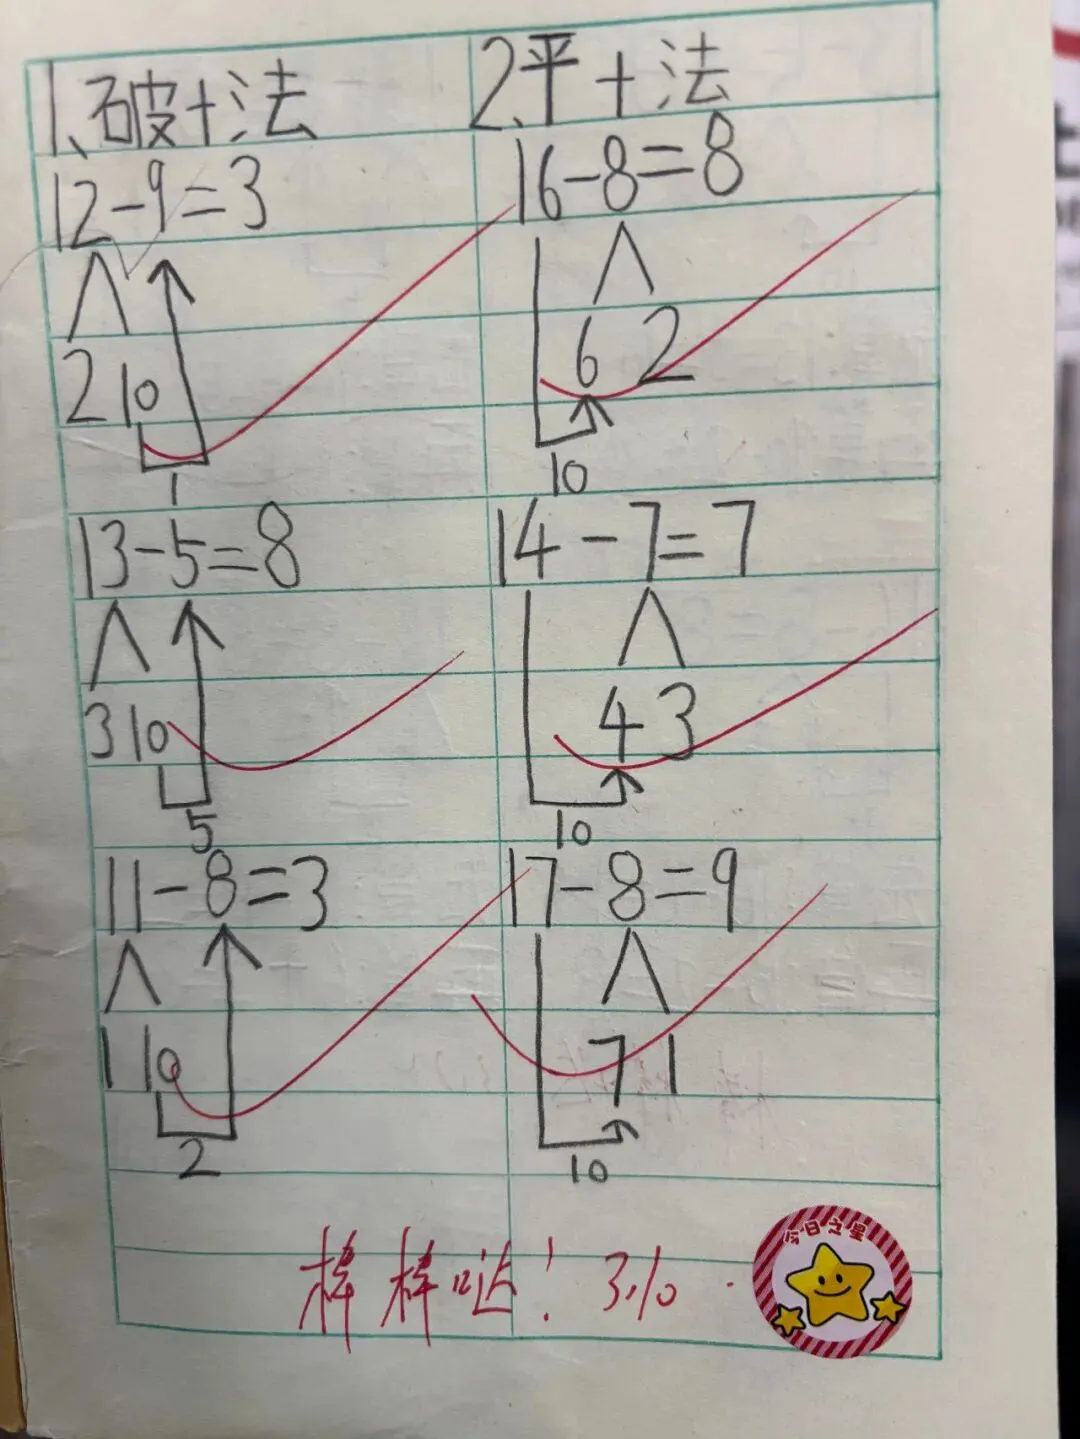 1、破十法
12-9=3
2 10
1
13-5=8
3 10
5
11-8=3
1 10
2
2、平十法
16-8=8
6 2
10
14-7=7
4 3
10
17-8=9
7 1
10
棒棒哒! 3.10.
今日之星